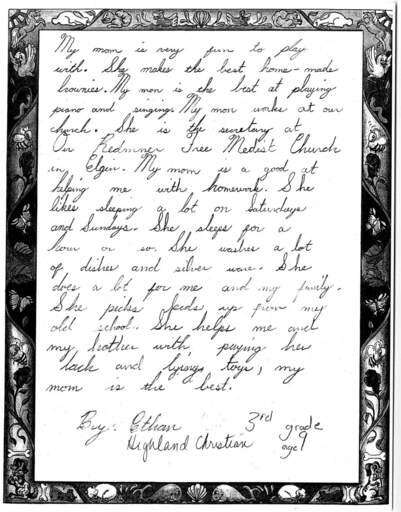 My mom is very fun to play
with. She makes the best home-made
brownies. My mom is the best at playing
piano and singing. My mom works at our
church. She is the secretary at
Our Free Church
in Elgin. My mom is a good at
helping me with homework. She
likes sleeping a lot on Saturdays
and Sundays. She sleeps for a
hour or so. She washes a lot
of dishes and silver ware. She
does a lot for me and my family.
She picks up from my
old school. She helps me and
my brother with, paying her
back and toys, my
mom is the best.
By: Ethan 3rd grade
Highland Christian age 9